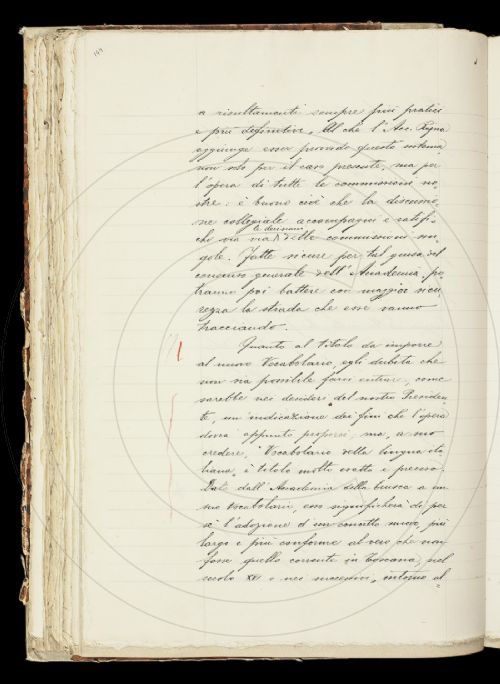 149
a risultamenti sempre più pratici
e più definitivi. Al che l'Acc. Rajna
aggiunge esser provvido questo sistema
non solo per il caso presente, ma per
l'opera di tutte le commissioni no-
stre: è buono cioè che la discussio-
ne collegiale accompagni e ratifi-
le decisioni
chi via via delle commissioni sin-
gole. Fatte sicure per tal guisa del
consenso generale dell'Accademia, po-
tranno poi battere con maggior sicu-
rezza la strada che esse vanno
tracciando.
Quanto al titolo da imporre
al nuovo Vocabolario, egli dubita che
non sia possibile farvi entrar, come
sarebbe nei desideri del nostro Presiden-
te, un'indicazione dei fini che l'opera
dovrà appunto proporsi, ma, a suo
credere, "Vocabolario della lingua ita-
liana" è titolo molto esatto e preciso.
Dato dall'Accademia della Crusca a un
suo Vocabolario, esso significherà di per
sé l'adozione d'un concetto nuovo, più
largo e più conforme al vero che non
fosse quello corrente in Toscana nel
secolo XVI e nei successivi, intorno al-